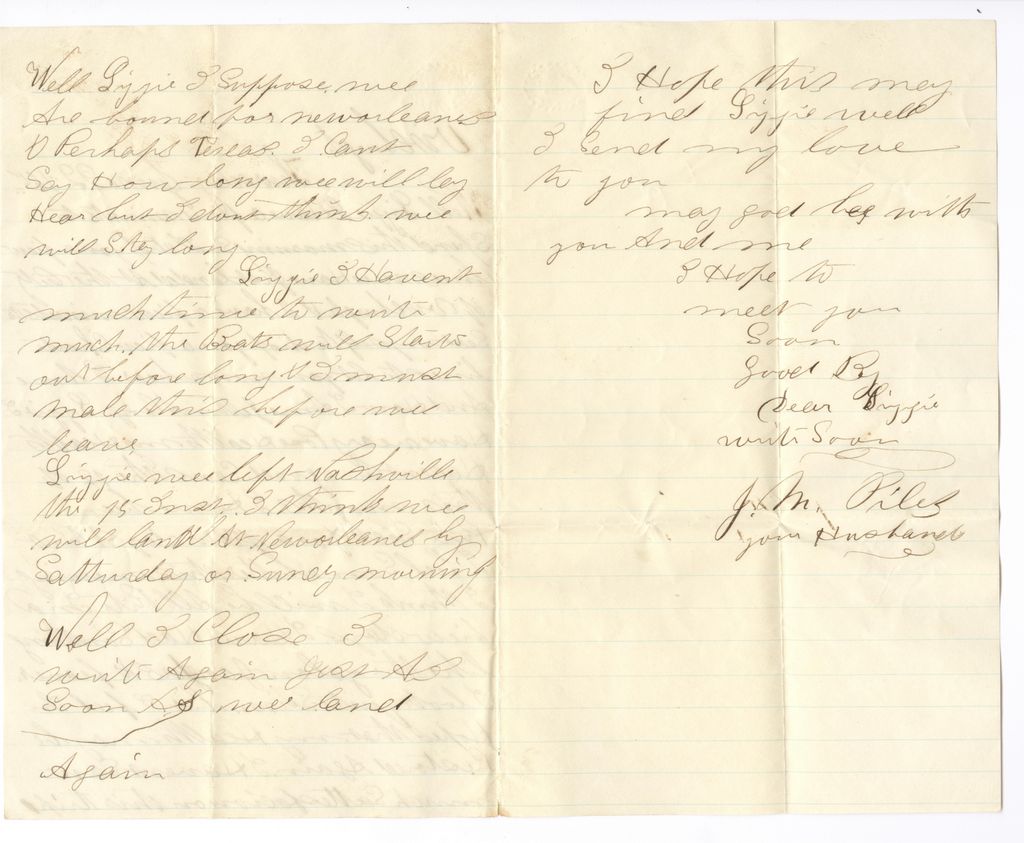 Well Lizzie I Suppose wee
Are bound for neworleanes
O Perhaps Texas. I Cant
Say How long wee will lay
Hear but I dont think wee
will Stay long
Lizzie I Havent
much time to write
much. the Boats will Starte
out before long & I must
male this before wee
leave
Lizzie wee left Nashville
the 15 Inst. I think wee
will land At Neworleanes by
Satturday or Suney morning
Well I Close I
write Again Just As
Soon AS wee land
Again
I Hope this may
find Lizzie well
I Send my love
to you
may god bee with
you And me
I Hope to
meet you
Soon
Good By
Dear Lizzie
write Soon
J. M. Piles
your Husband